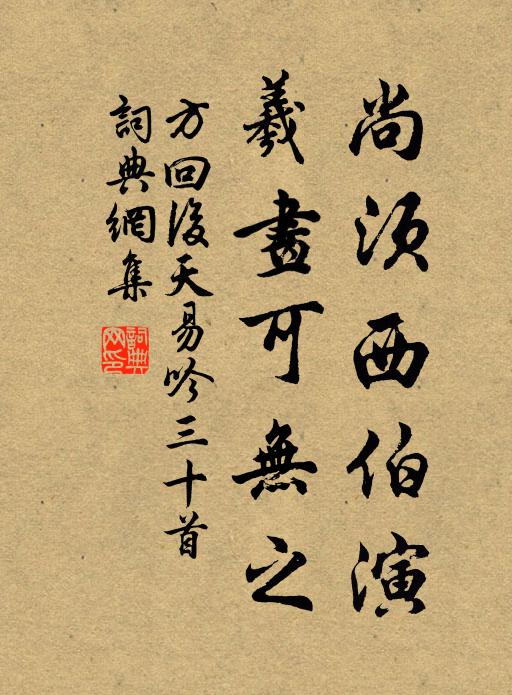 尚須西伯演
羲畫可無之
方回後天易吟三十首
詞典網集
詞典網印